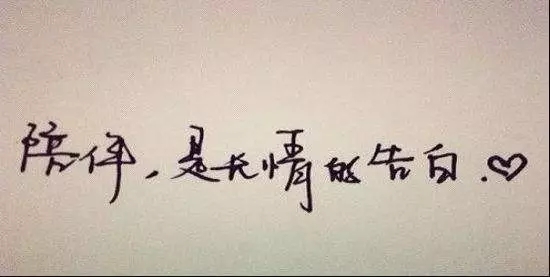 陪伴，是长情的告白.♡